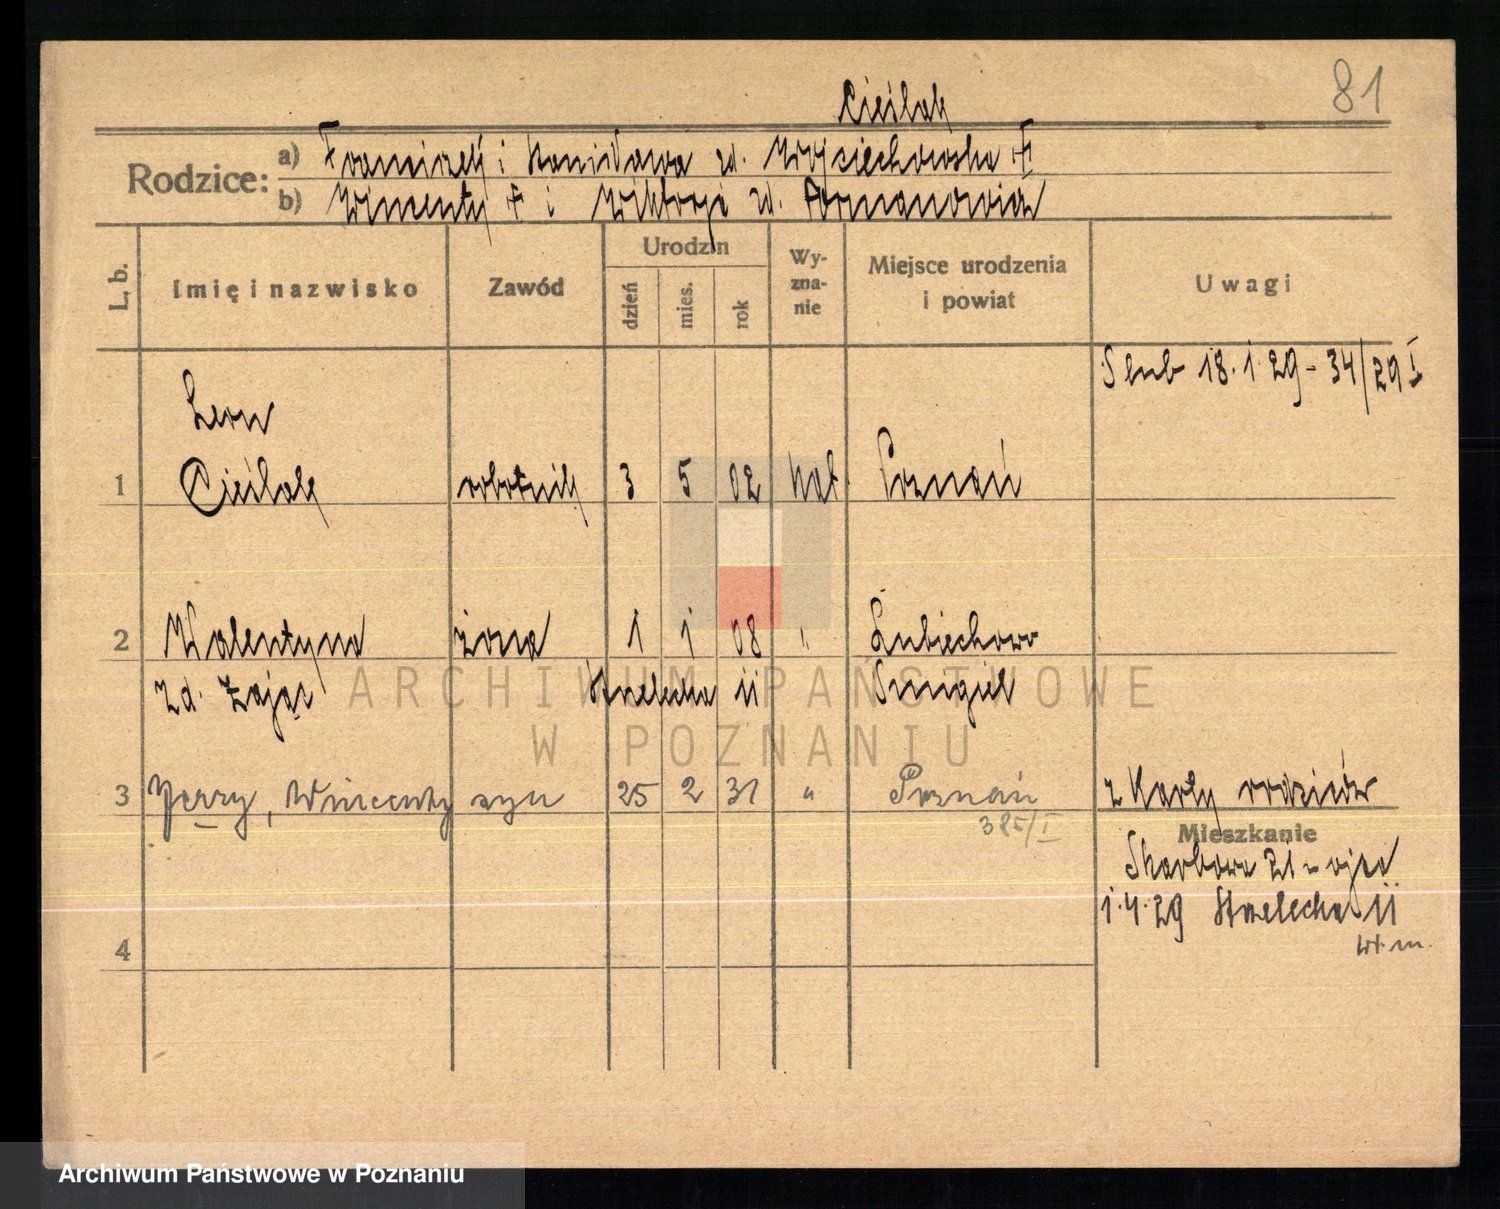 81
Cieślak
Rodzice: a) Franciszek i Stanisława zd. Wojciechowska †
b) Wincenty † i Wiktorja zd. Furmanowicz
L. b. Imię i nazwisko Zawód Urodzin Wyznanie Miejsce urodzenia i powiat Uwagi
dzień mies. rok
Ślub 18.1.29 - 34/29 I
Leon
1 Cieślak robotnik 3 5 02 kat. Poznań
2 Walentyna żona 1 1 08 " Lubiechowo
zd. Zając Strzelecka 11 Śmigiel
3 Jerzy, Wincenty syn 25 2 31 " Poznań z karty rodziców
385/I
Mieszkanie
Skarbowa 21 u ojca
1.4.29 Strzelecka 11
wł. m.
4
ARCHIWUM PAŃSTWOWE
W POZNANIU
Archiwum Państwowe w Poznaniu